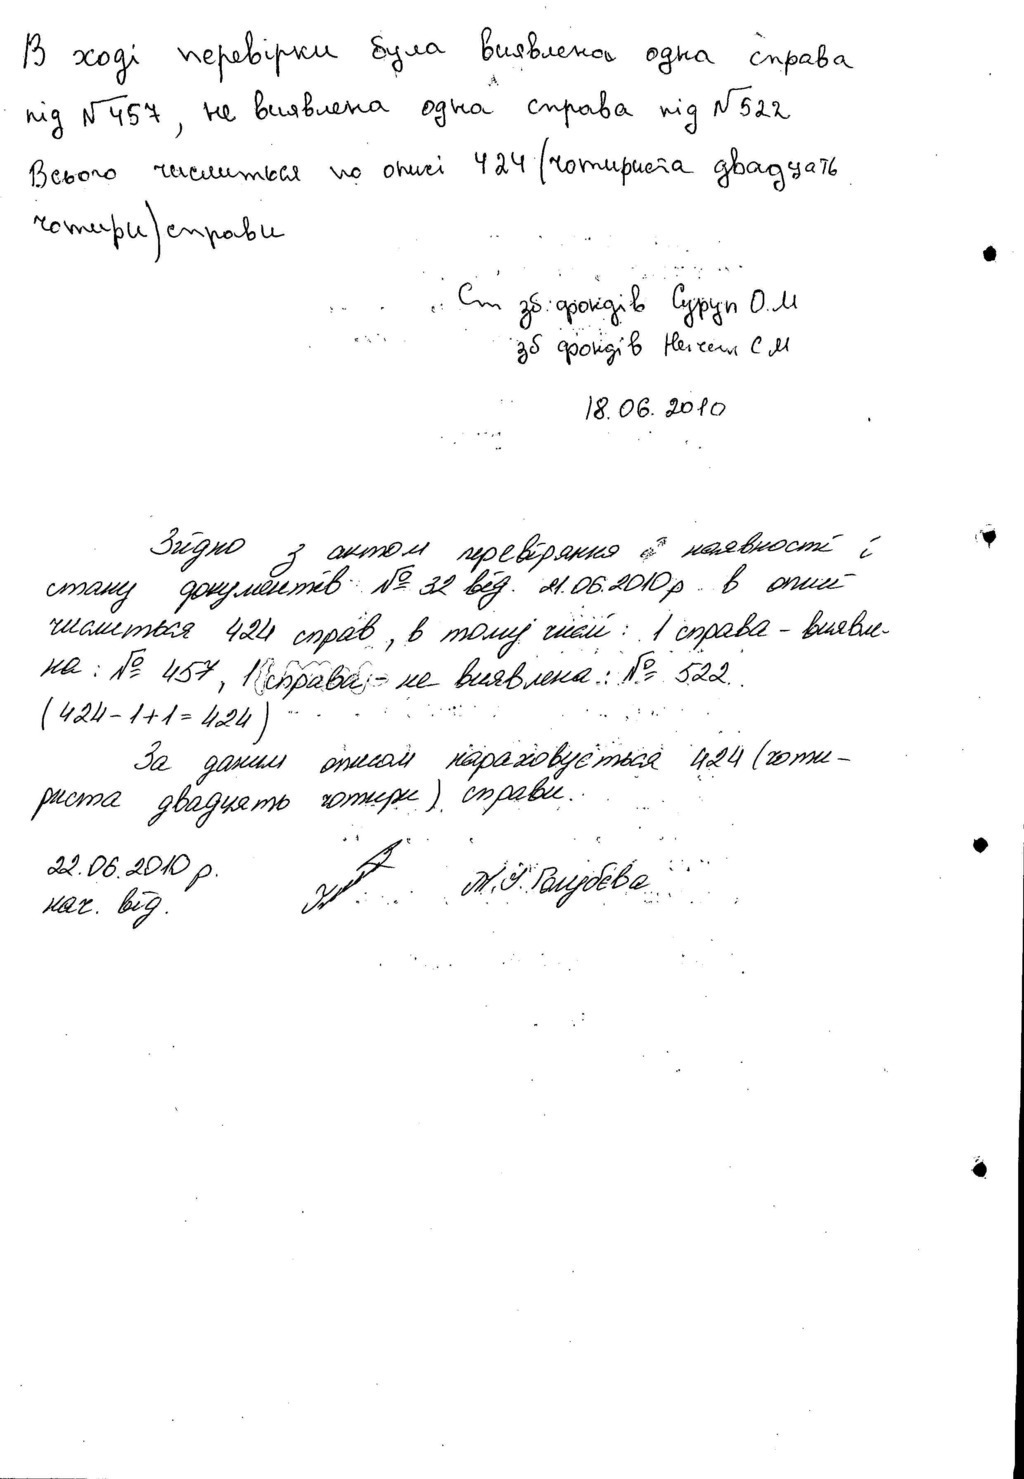 В ході перевірки була виявлена одна справа
під №457, не виявлена одна справа під №522
Всього числиться по описі 424 (чотириста двадцать
чотири) справи
Ст зб. фондів Суруп О.М
зб фондів С М
18.06.2010
Згідно з актом перевіряння наявності і
стану документів № 32 від. 21.06.2010 р. в описі
числиться 424 справ, в тому числі: 1 справа - виявле-
на: № 457, 1 справа - не виявлена: № 522.
(424-1+1=424)
За даним описом нараховується 424 (чоти-
риста двадцять чотири) справи.
22.06.2010 р.
нач. від. Голубєва